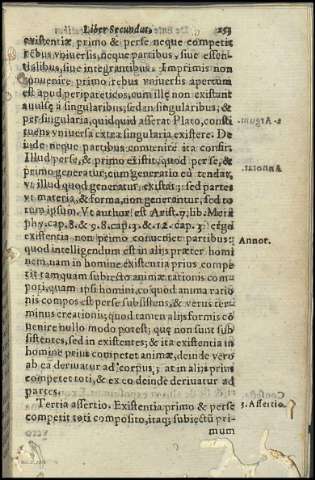 Liber Secundus. 253
existentiæ primo & perse neque competit
rebus vniuersis, neque partibus, siue essen-
tialibus, siue integrantibus. Imprimis non
conuenire primo rebus vniuersis apertum
est apud peripateticos, cum illę non existant
auulsę à singularibus, sed an singularibus, &
per singularia, quidquid asserat Plato, consti
tuens vniuersa extra singularia existere. De
inde neque partibus conuenire ita consir.
Illud per se, & primo existit, quod per se, &
primo generatur; cum generatio eò tendat,
vt illud quod generatur, existat; sed partes
vt materia, & forma, non generantur, sed to
tum ipsum. Vt author est Arist. 7. lib. Meta
phy. cap. 8. & 9. 8. cap. 3. & 12. cap. 3. ergo
existentia non primo conuenit partibus:
quod intelligendum est in alijs præter homi
nem, nam in homine existentia prius compe
tit tamquam subiecto animæ rationis com-
poti, quam ipsi homini, eo quod anima ratio
nis compos est perse subsistens, & verus ter-
minus creationis; quod tamen alijs formis cō
uenire nullo modo potest; quę non sunt sub
sistentes, sed in existentes; & ita existentia in
homine prius competet animæ, deinde verò
ab ea deriuatur ad corpus; at in alijs prius
competet toti, & ex eo deinde deriuatur ad
partes.
Tertia assertio. Existentia primo & perse
competit toti composito, itaq; subiectū pri-
mum
2. Argum.
Annot.
3. Assertio.